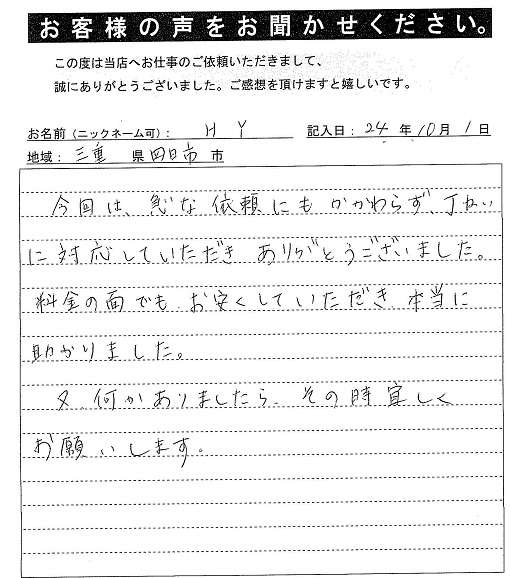 お客様の声をお聞かせください。
この度は当店へお仕事のご依頼いただきまして、
誠にありがとうございました。ご感想を頂けますと嬉しいです。
お名前（ニックネーム可）： H Y 記入日： 24 年 10 月 1 日
地域： 三重 県 四日市 市
今回は、急な依頼にもかかわらず、丁ねい
に対応していただき ありがとうございました。
料金の面でも、お安くしていただき 本当に
助かりました。
又、何かありましたら、その時宜しく
お願いします。